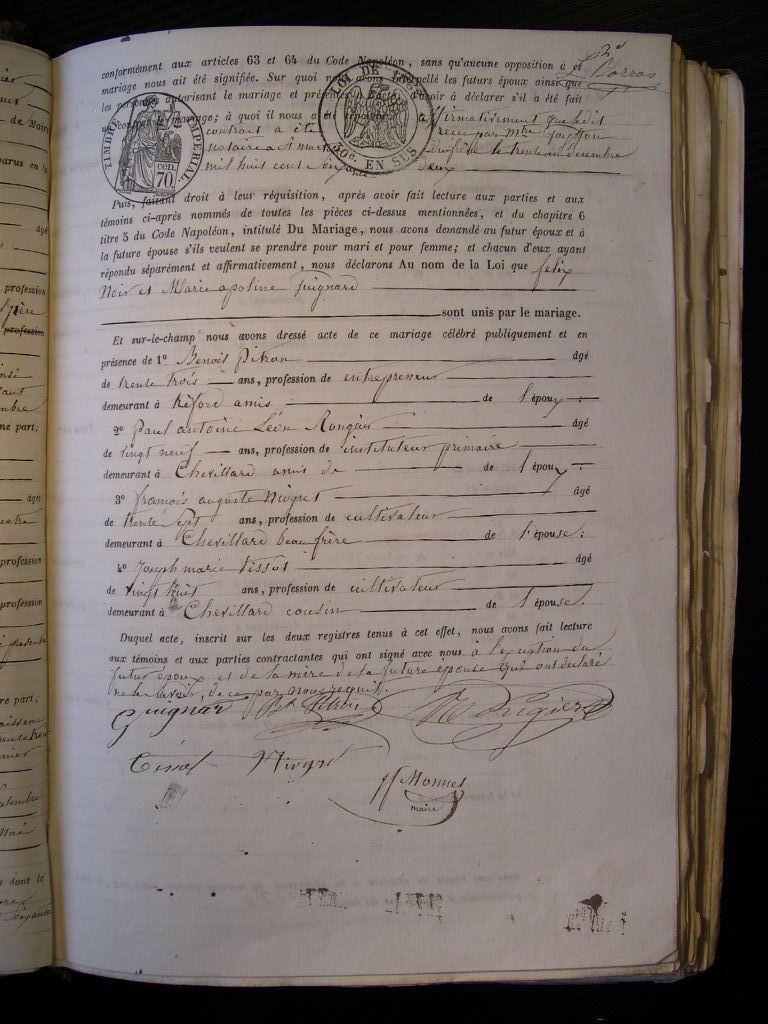 conformément aux articles 63 et 64 du Code Napoléon, sans qu'aucune opposition à ce
mariage nous ait été signifiée. Sur quoi nous avons interpellé les futurs époux ainsi que
les personnes autorisant le mariage et présentes à l'acte, d'avoir à déclarer s'il a été fait
contrat de mariage; à quoi il nous a été répondu affirmativement que ledit
contrat a été reçu par Mtre
notaire à St mart le trente un décembre
mil huit cent soixante deux
TIMBRE IMPÉRIAL
cen. 70
LOI DE 1862
50c. EN SUS
Puis, faisant droit à leur réquisition, après avoir fait lecture aux parties et aux
témoins ci-après nommés de toutes les pièces ci-dessus mentionnées, et du chapitre 6
titre 5 du Code Napoléon, intitulé Du Mariage, nous avons demandé au futur époux et à
la future épouse s'ils veulent se prendre pour mari et pour femme; et chacun d'eux ayant
répondu séparément et affirmativement, nous déclarons Au nom de la Loi que felix
Noir et Marie apoline Guignard
sont unis par le mariage.
Et sur-le-champ nous avons dressé acte de ce mariage célébré publiquement et en
présence de 1° Benoit Pitron âgé
de trente trois ans, profession de entrepreneur
demeurant à amis de l'époux :
2° Paul antoine Léon âgé
de vingt neuf ans, profession de instituteur primaire
demeurant à Chevillard amis de de l'époux
3° francois auguste Nivyret âgé
de trente sept ans, profession de cultivateur
demeurant à Chevillard beau frère de l'épouse :
4° Joseph marie tissot âgé
de vingt huit ans, profession de cultivateur
demeurant à Chevillard cousin de l'épouse.
Duquel acte, inscrit sur les deux registres tenus à cet effet, nous avons fait lecture
aux témoins et aux parties contractantes qui ont signé avec nous à l'exception du
futur époux et de la mère de la future épouse qui ont déclaré
ne le savoir, de ce par nous requis.
Guignar Bt Pitron
Tissot Nivyret
Monnet
maire